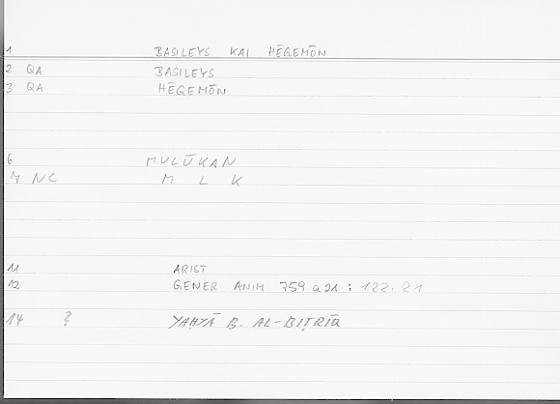 1 BASILEYS KAI HĒGEMŌN
2 QA BASILEYS
3 QA HĒGEMŌN
6 MULŪKAN
7 NC M L K
11 ARIST
12 GENER ANIM 759 a 21 : 122.21
14 ? YAḤYĀ B. AL-BIṬRĪQ